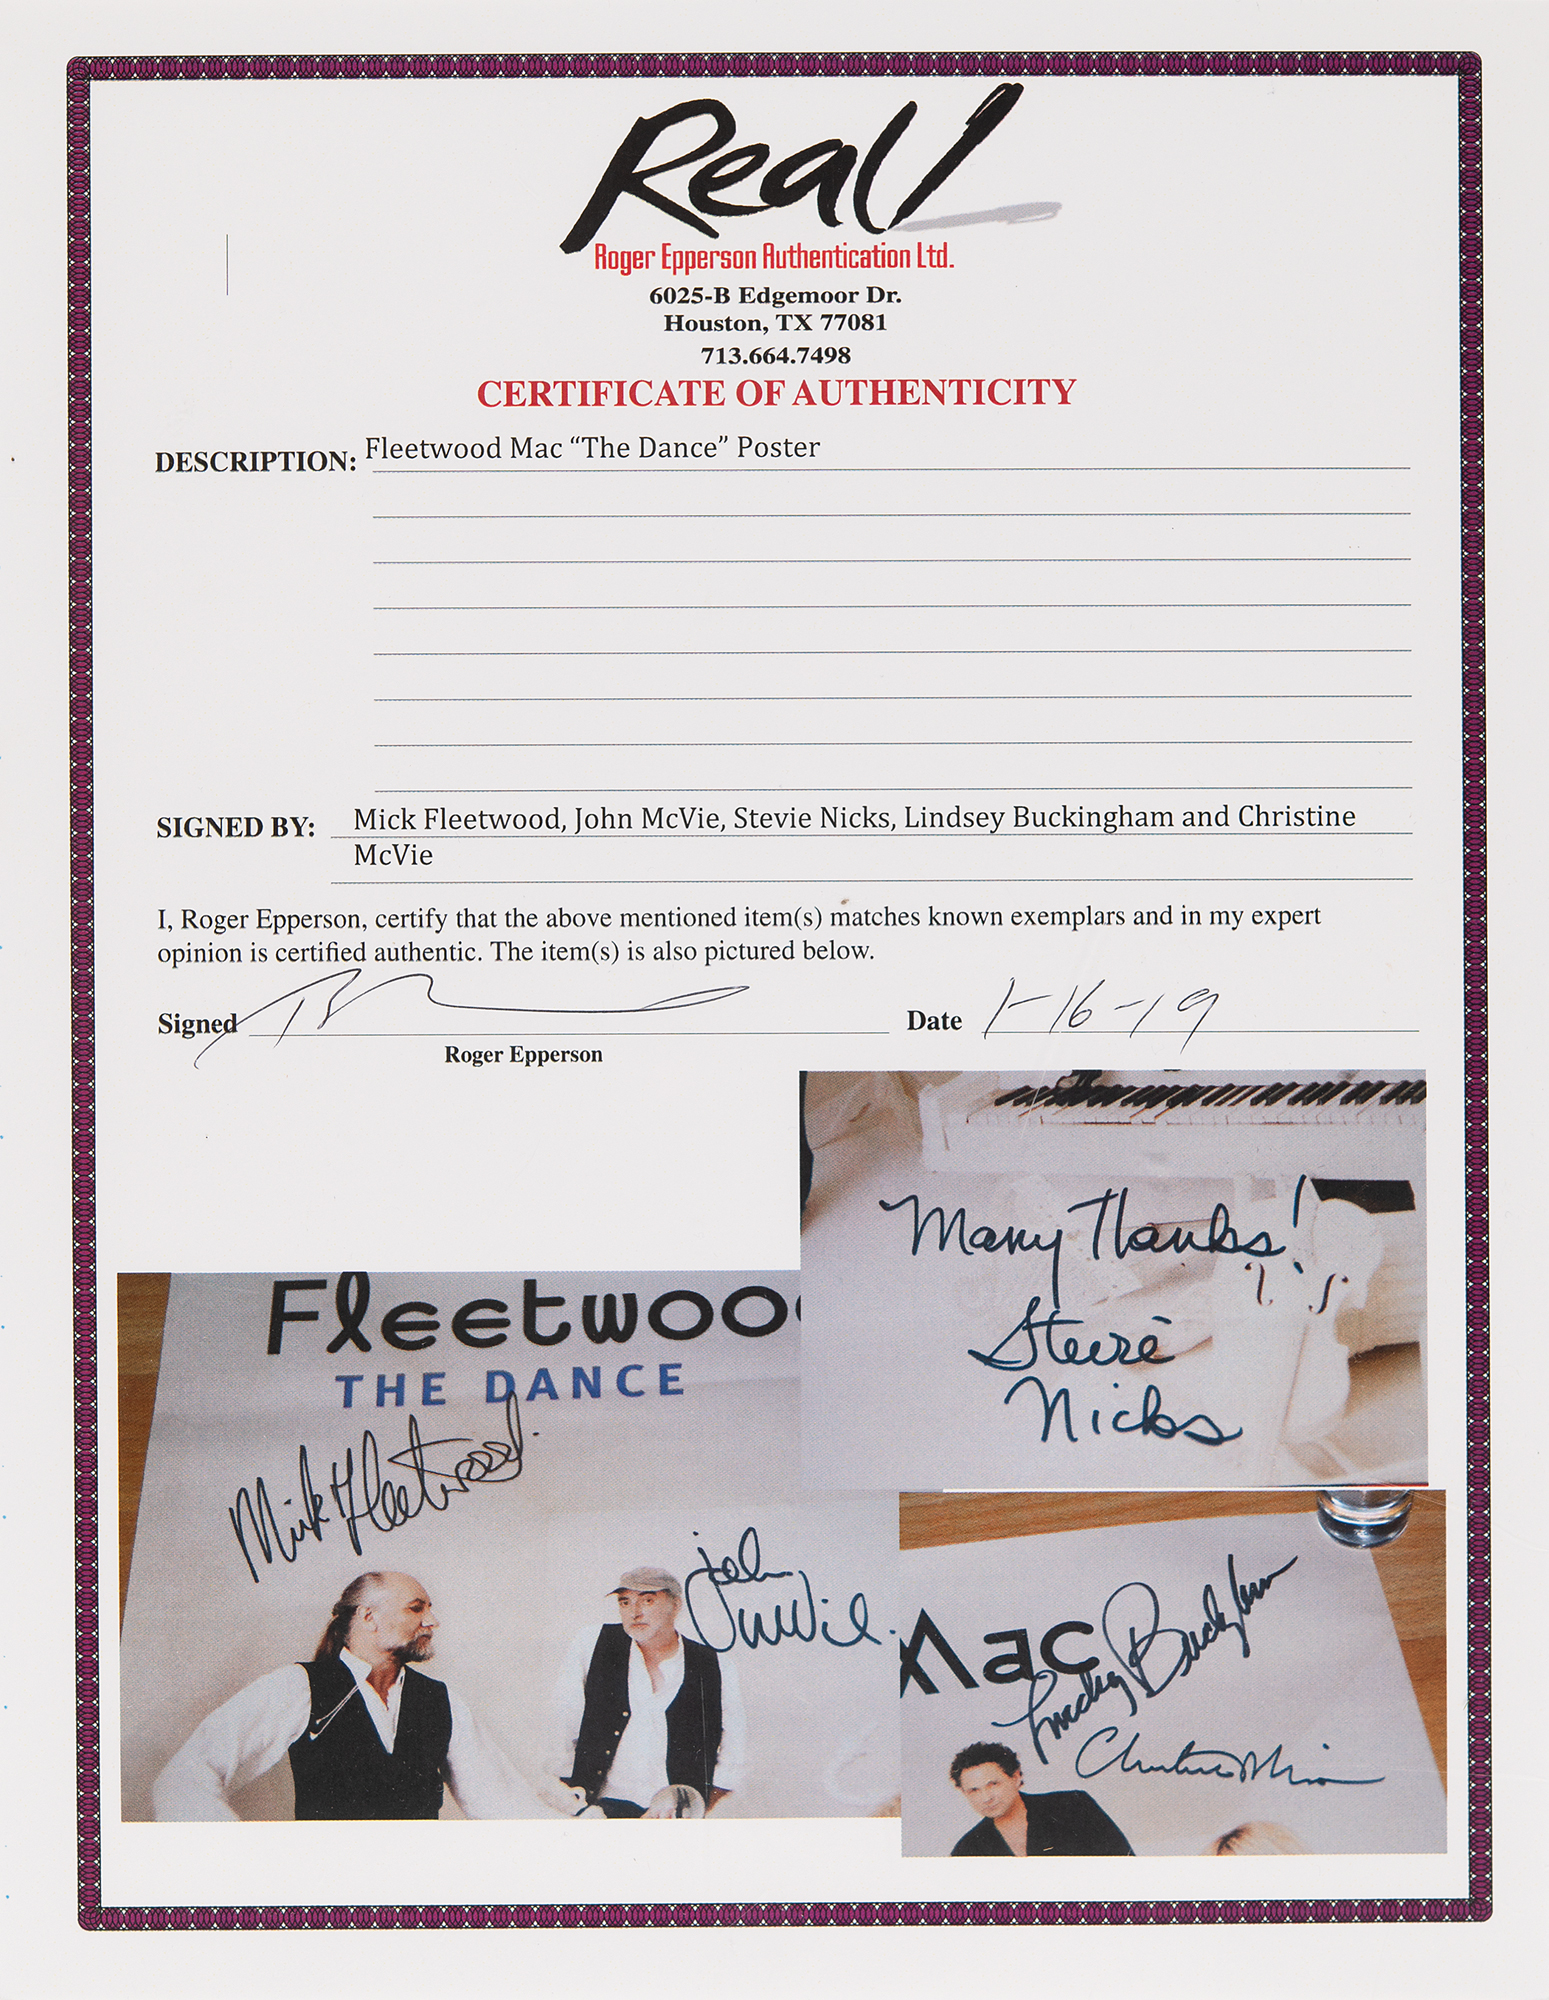 Real
Roger Epperson Authentication Ltd.
6025-B Edgemoor Dr.
Houston, TX 77081
713.664.7498
CERTIFICATE OF AUTHENTICITY
DESCRIPTION: Fleetwood Mac “The Dance” Poster
SIGNED BY: Mick Fleetwood, John McVie, Stevie Nicks, Lindsey Buckingham and Christine
McVie
I, Roger Epperson, certify that the above mentioned item(s) matches known exemplars and in my expert
opinion is certified authentic. The item(s) is also pictured below.
Signed Date 1-16-19
Roger Epperson
Many Thanks!
Stevie
Nicks
Fleetwoo
THE DANCE
Mick Fleetwood
John
McVie
Mac
Lindsey Buckingham
Christine McVie